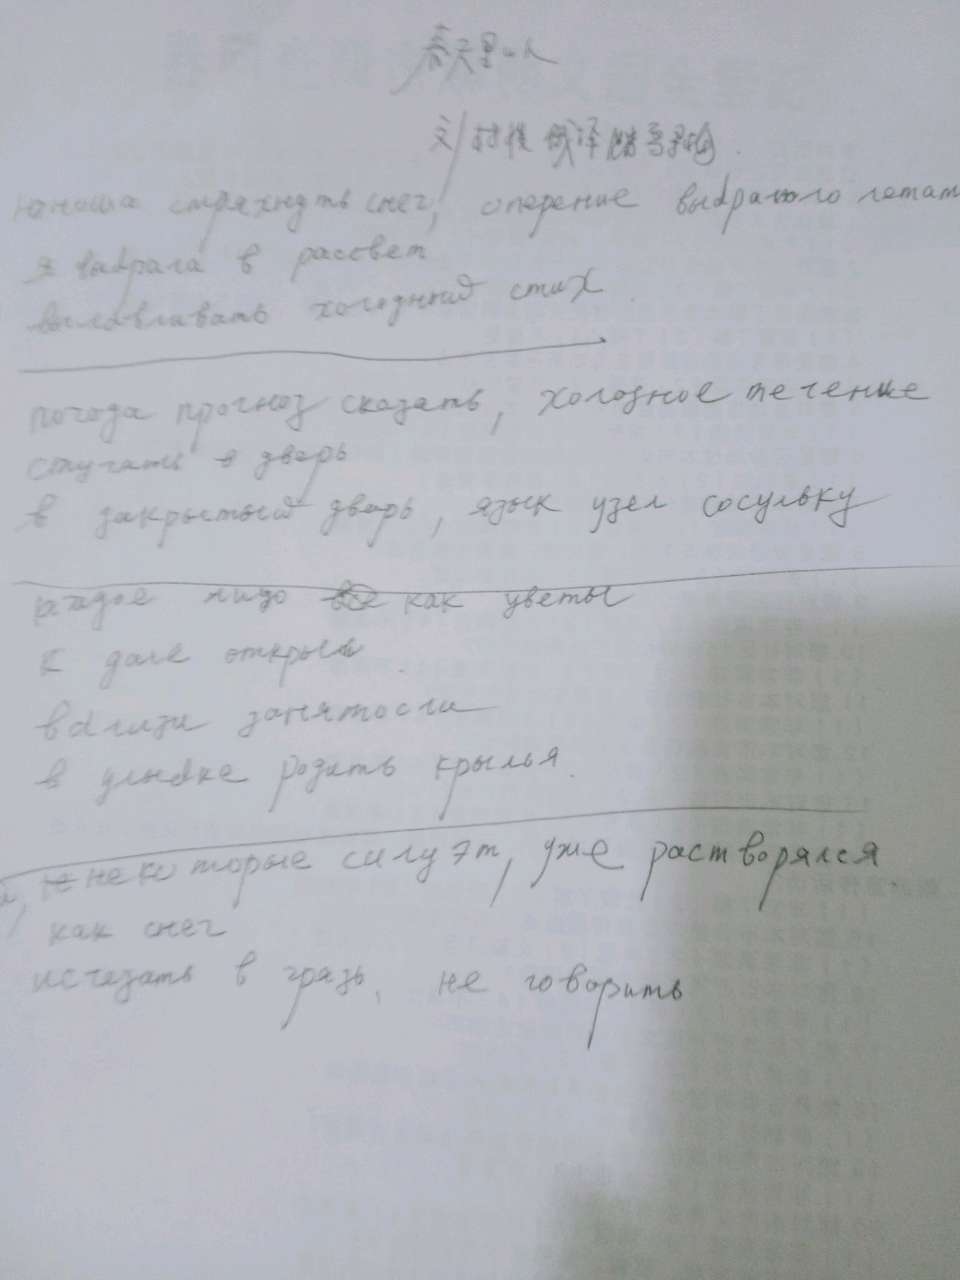 春天里的人
文/村
юноша стряхнуть снег, оперение выбрало летат
я выбрала в рассвет
вылавливать холодный стих
погода прогноз сказать, холодное течение
стучать в дверь
в закрытый дверь, язык узел сосульку
каждое лицо как цветы
к дале открыл
вблизи занятости
в улыбке родить крылья.
некоторые силуэт, уже растворялся
как снег
исчезать в грязь, не говорить